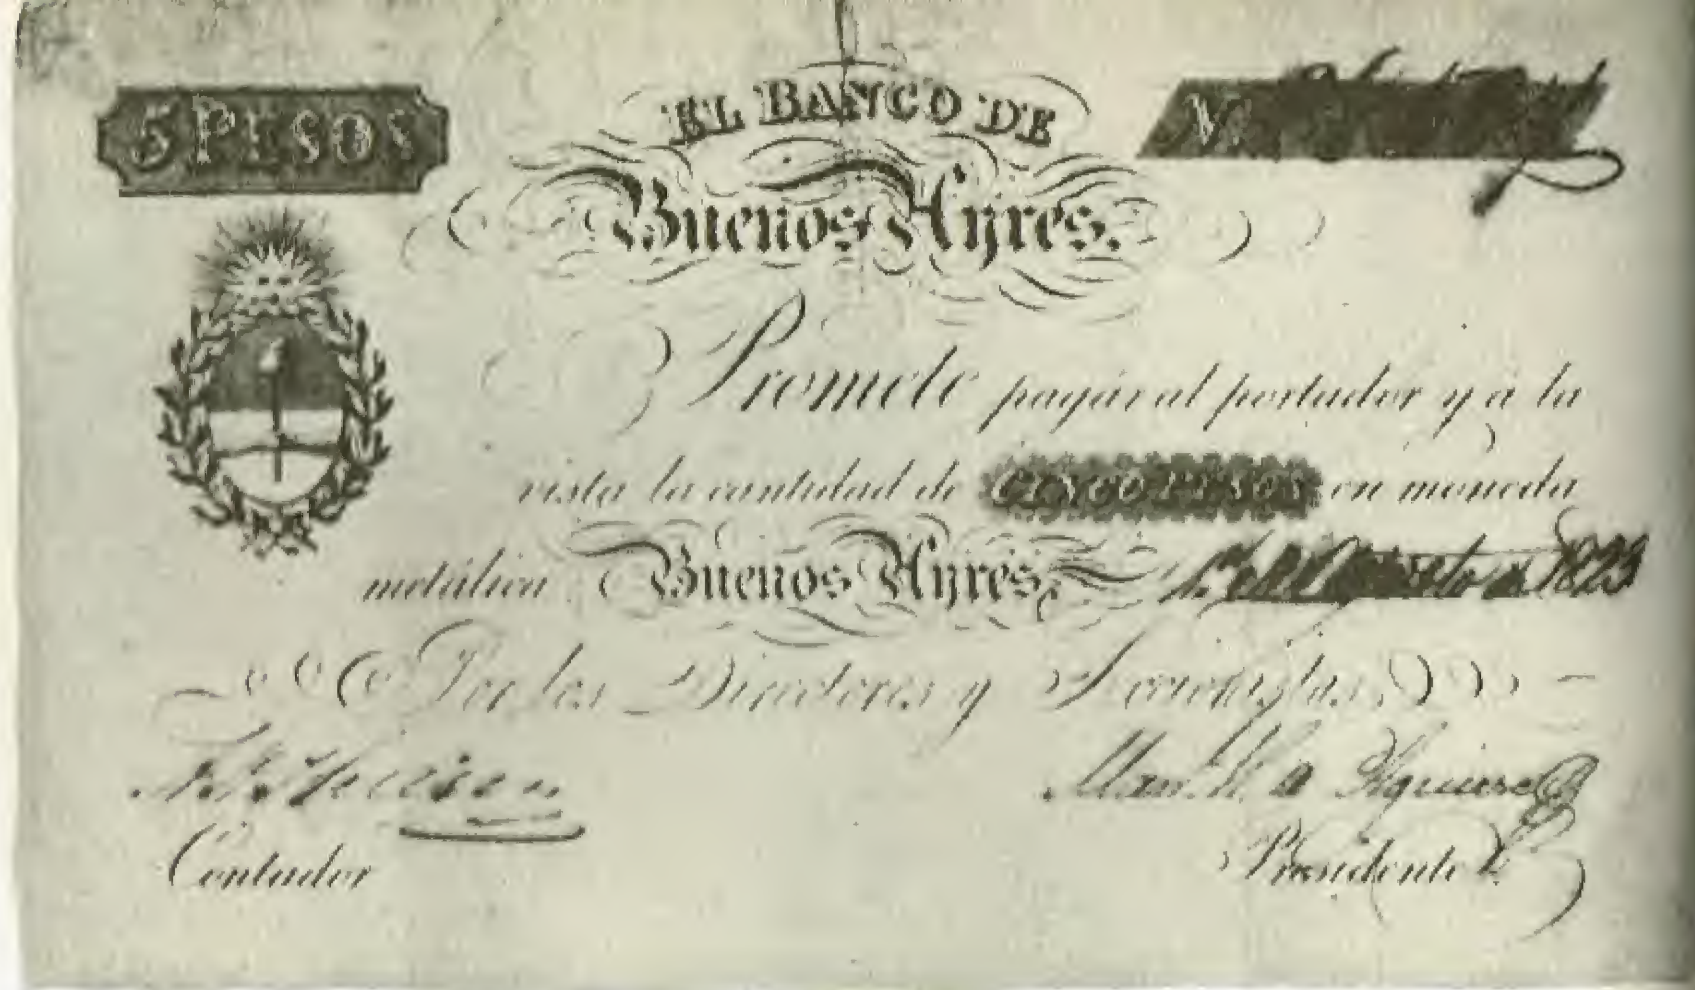 5 PESOS
EL BANCO DE
Nº
Buenos Ayres.
Promete pagár al portador y á la
vista la cantidad de CINCO PESOS en moneda
metálica Buenos Ayres, 1º de Agosto de 1823
Por los Directores y Accionistas
Contador
Man. H. de Aguirre
Presidente